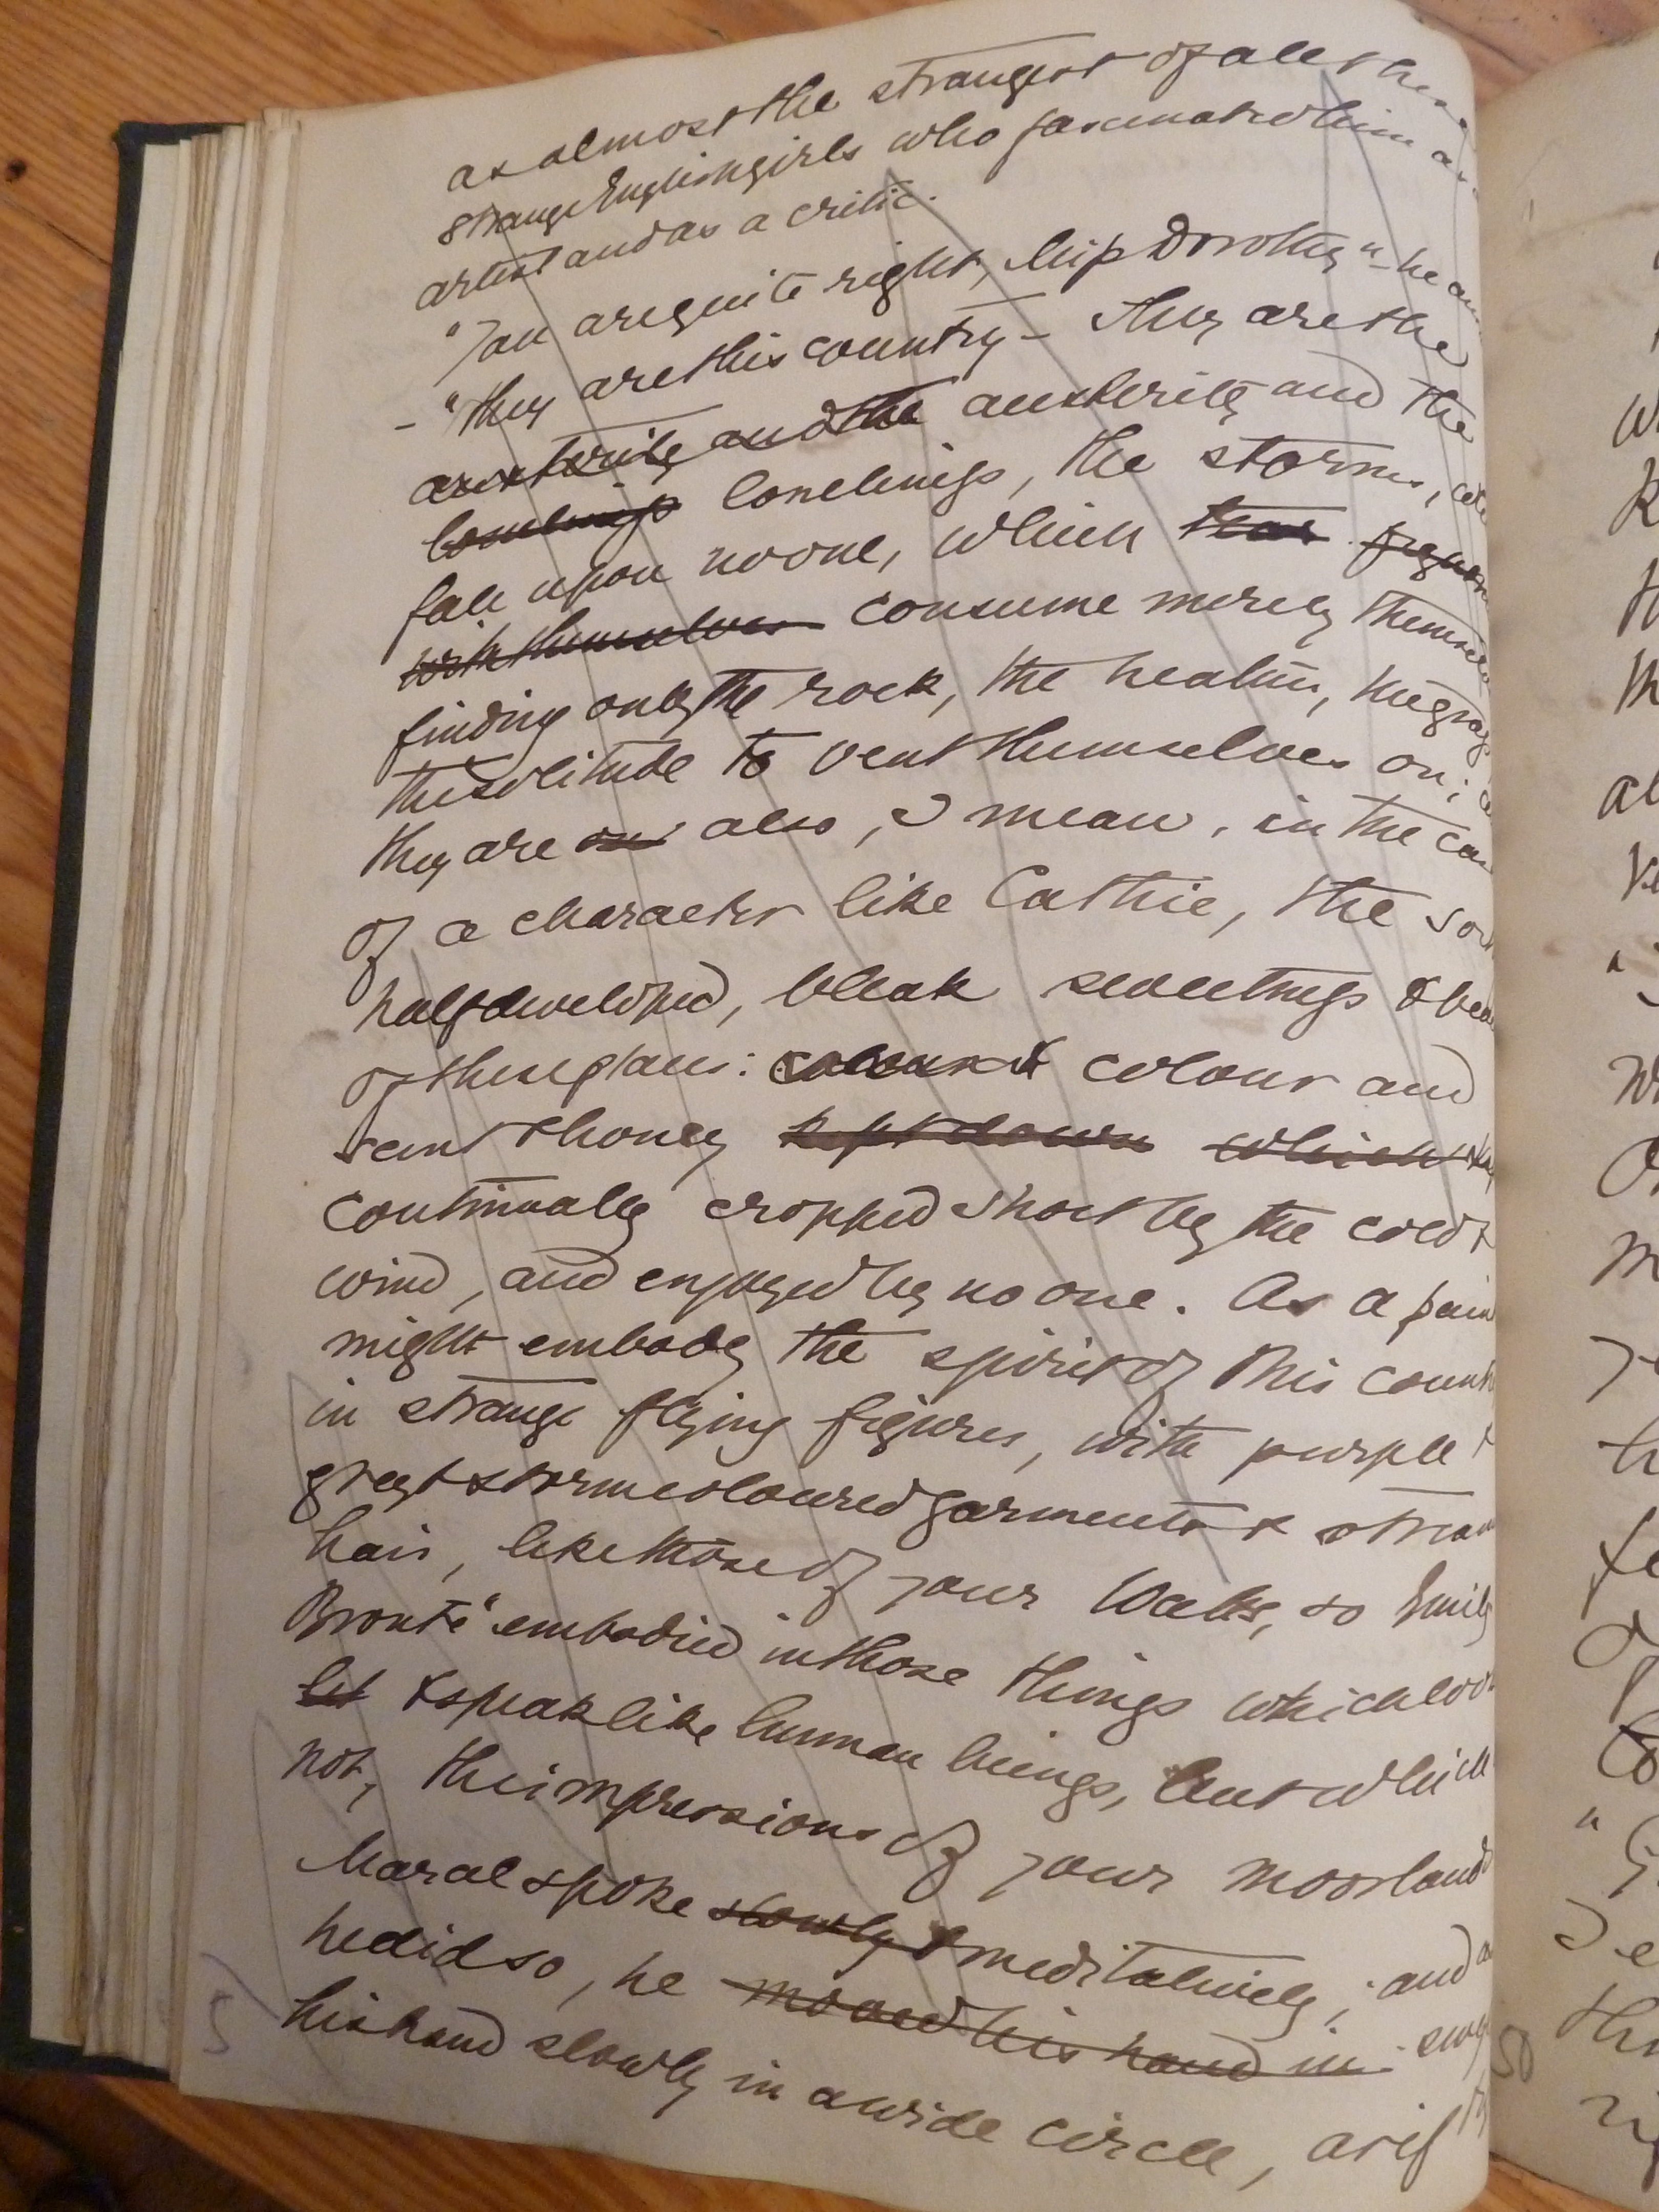 as almost the strangest of all these
strange English girls who fascinated him as
artist and as a critic.
"You are quite right, Miss Dorothy" – he
– "they are this country – They are the
austerity and the austerity and the
loneliness loneliness, the storms,
fall upon no one, which
with themselves consume merely themselves
finding only the rock, the heather, the
the solitude to vent themselves on;
they are also, I mean, in the case
of a character like Cathie, the
half developed, bleak sweetness &
of these places: colour and
scent & honey kept down which
continually cropped short by the cold &
wind, and enjoyed by no one. As a
might embody the spirit of this
in strange flying figures, with purple &
grey & storm coloured garments &
hair, like those of your Watts, so Emily
Brontë embodied in those things which
& speak like human beings, but which
not, the impressions of your moorlands
Maral spoke slowly & meditatively; and as
he did so, he moved his hand in
his hand slowly in a wide circle, as if